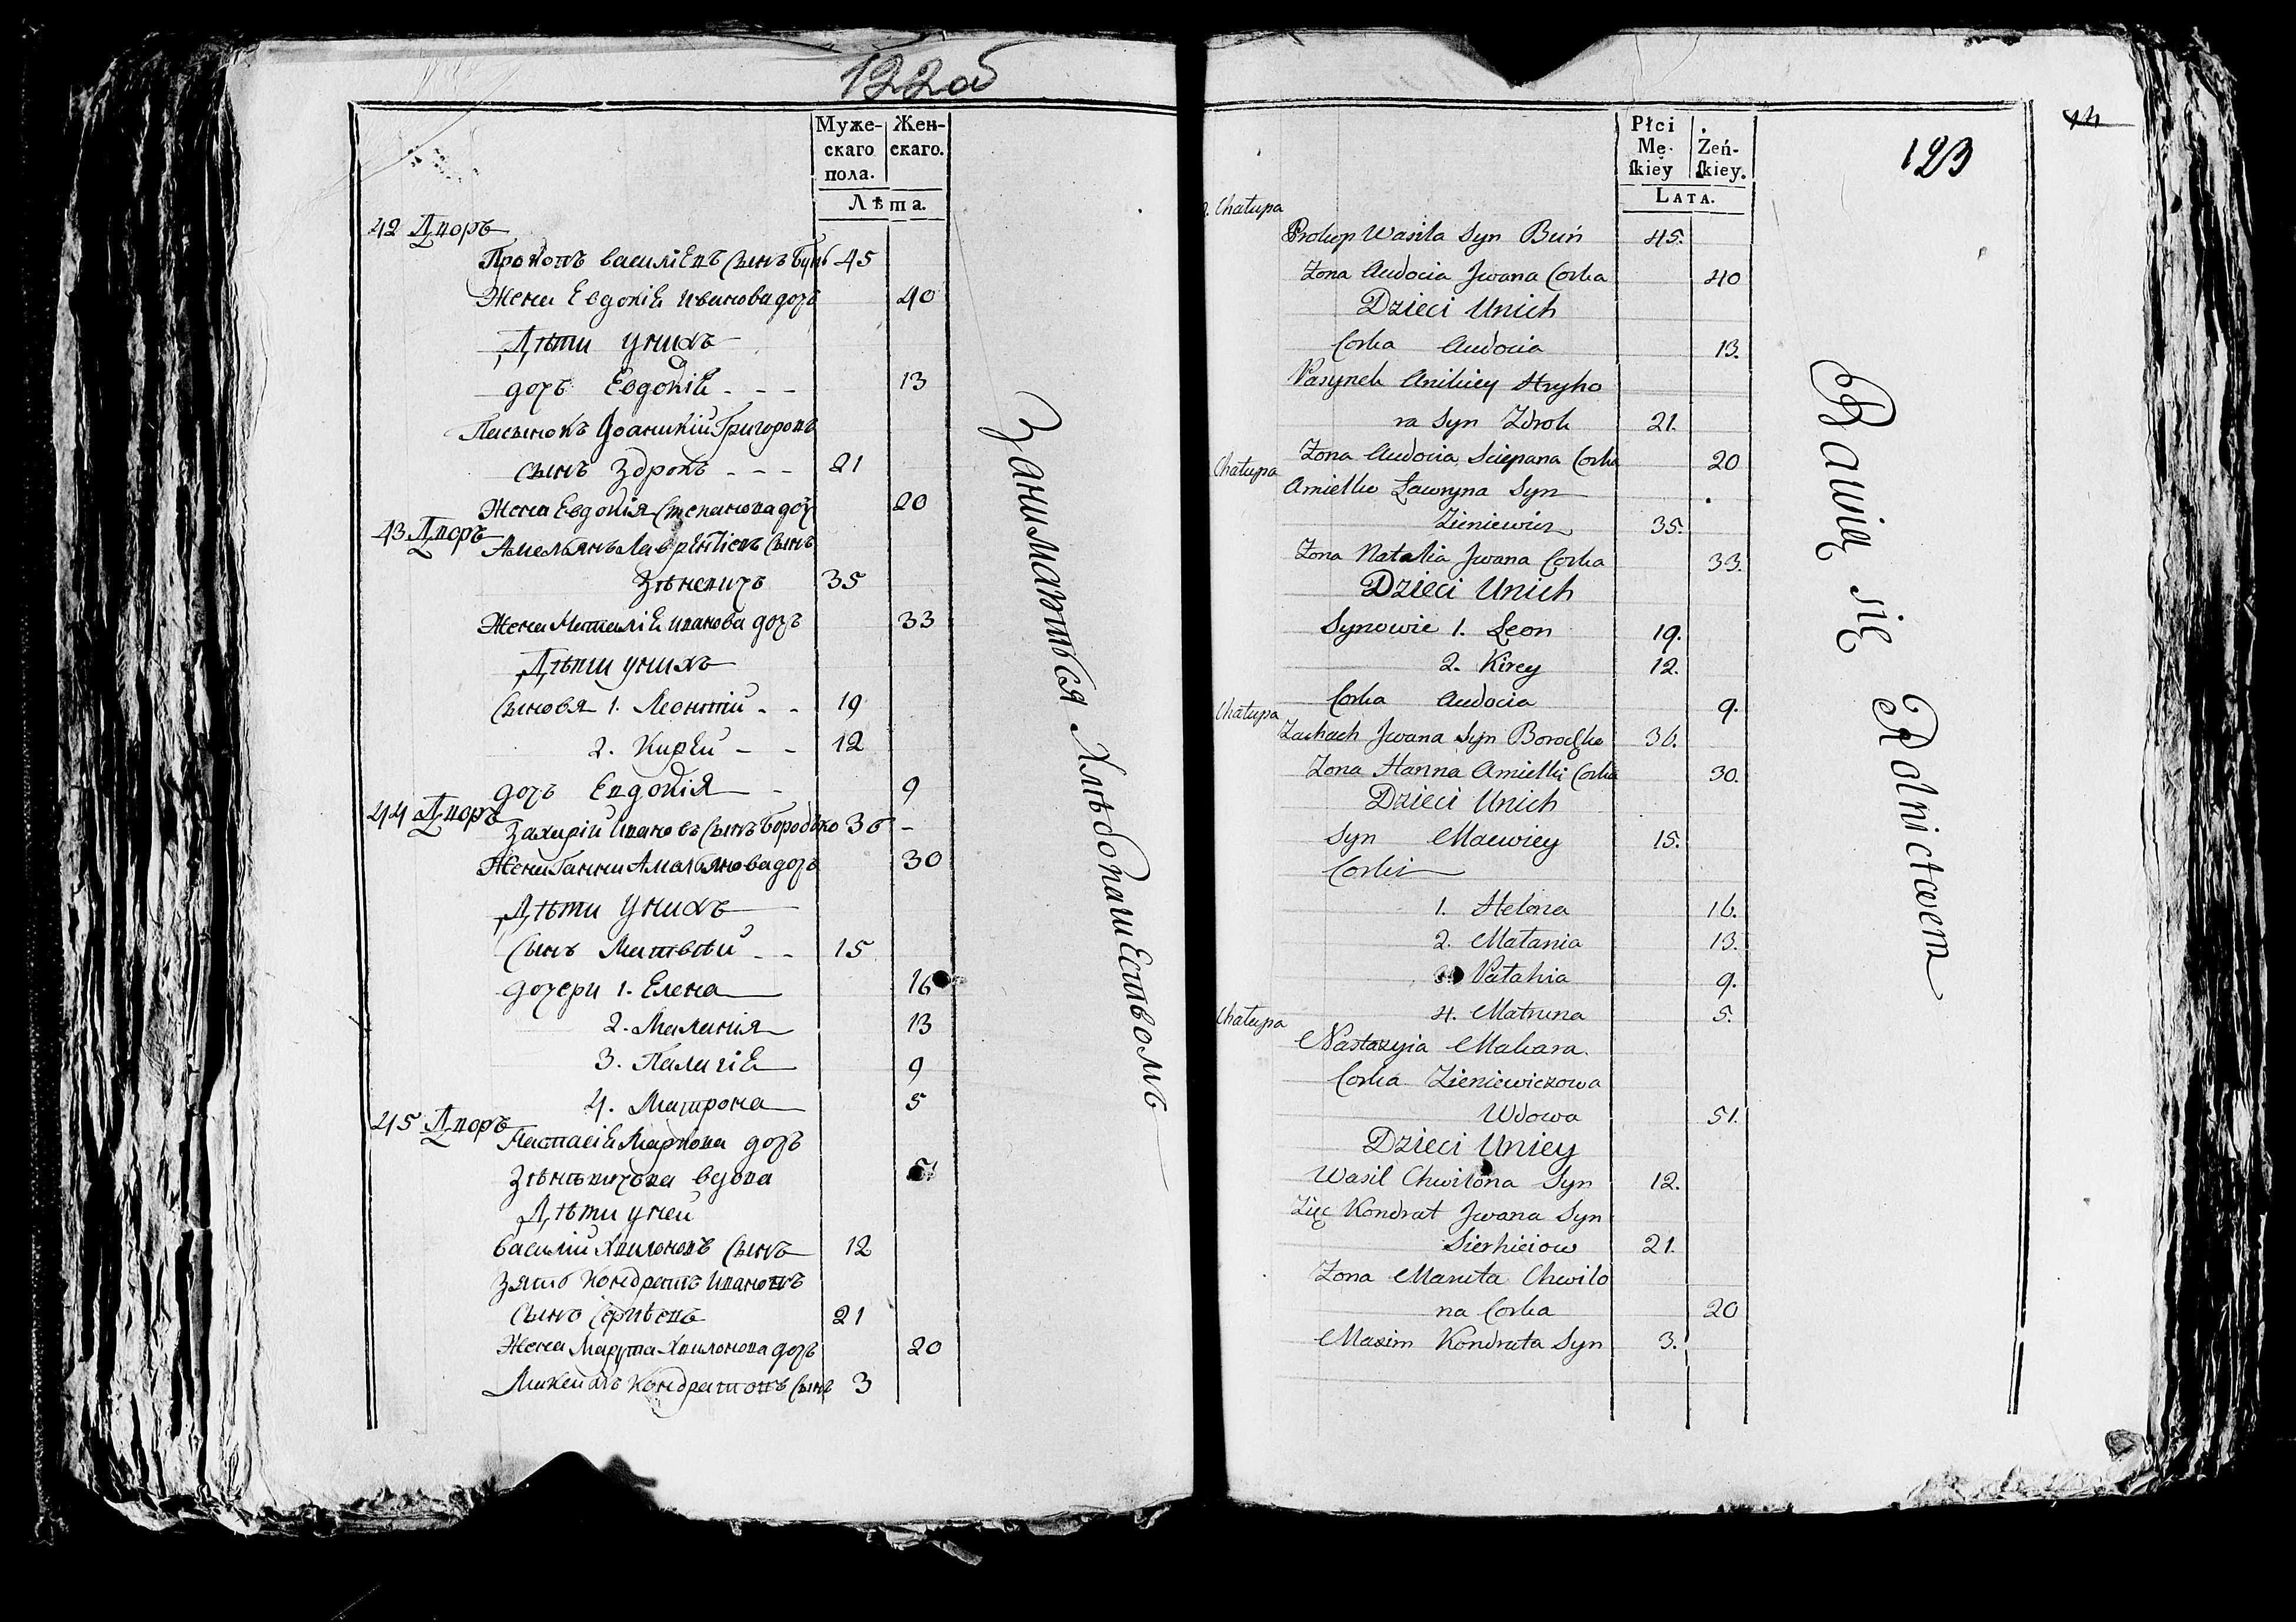 122об
Муже-
скаго
пола.
Жен-
скаго.
Лѣта.
42 Дворъ
Прокопъ василіевъ сынъ Бунь 45
Жена Евдокіѣ иванова дочь 40
Дѣти унихъ
дочь Евдокіѣ - - - 13
Пасынокъ Іоаникій Григоровъ
сынъ Здрокъ - - - 21
Жена Евдокія Степанова доч 20
43 Дворъ
Амельянъ Лаврентіевъ сынъ
Зѣневичъ 35
Жена Наталіѣ иванова дочь 33
Дѣти унихъ
сыновя 1. Леонтій - - 19
2. Кирѣй - - 12
дочь Евдокія - 9
44 Дворъ
Захарій Ивановъ сынъ Бородько 36 -
Жена Ганна Амельянова дочь 30
Дѣти унихъ
сынъ Матвѣй - - 15
дочери 1. Елена 16
2. Маланія 13
3. Палагіѣ 9
4. Матрона 5
45 Дворъ
Настасіѣ Маркова дочь
Зѣневичова вдова 51
Дѣти уней
василій Хвилоновъ сынъ 12
Зять Кондратъ Ивановъ
сынъ 21
Жена Марута Хвилонова дочь 20
Кондратовъ сынъ 3
Занимаются Хлѣбопашествомъ
123
Płci
Mę-
skiey
Żeń-
skiey.
LATA.
Chałupa
Prokop Wasila Syn Buń 45.
Zona Audocia Jwana Corka 40
Dzieci Unich
Corka Audocia 13.
Pasynek Anikiey Hryho
ra Syn Zdrok 21.
Zona Audocia Sciepana Corka 20
Chałupa
Amielko Ławryna Syn
Zieniewicz 35.
Zona Natalia Jwana Corka 33.
Dzieci Unich
Synowie 1. Leon 19.
2. Kirey 12.
Corka Audocia 9.
Chałupa
Zachach Jwana Syn Borodzko 36.
Zona Hanna Amielki Corka 30.
Dzieci Unich
Syn Macwiey 15.
Corki
1. Helena 16.
2. Małania 13.
3. Pałahia 9.
4. Matruna 5.
Chałupa
Nastazyia Makara
Corka Zieniewiczowa
Wdowa 51.
Dzieci Uniey
Wasil Chwilona Syn 12.
Zięć Kondrat Jwana Syn
Sierhieiow 21.
Zona Maruta Chwilo
na Corka 20
Maxim Kondrata Syn 3.
Bawią się Rolnictwem